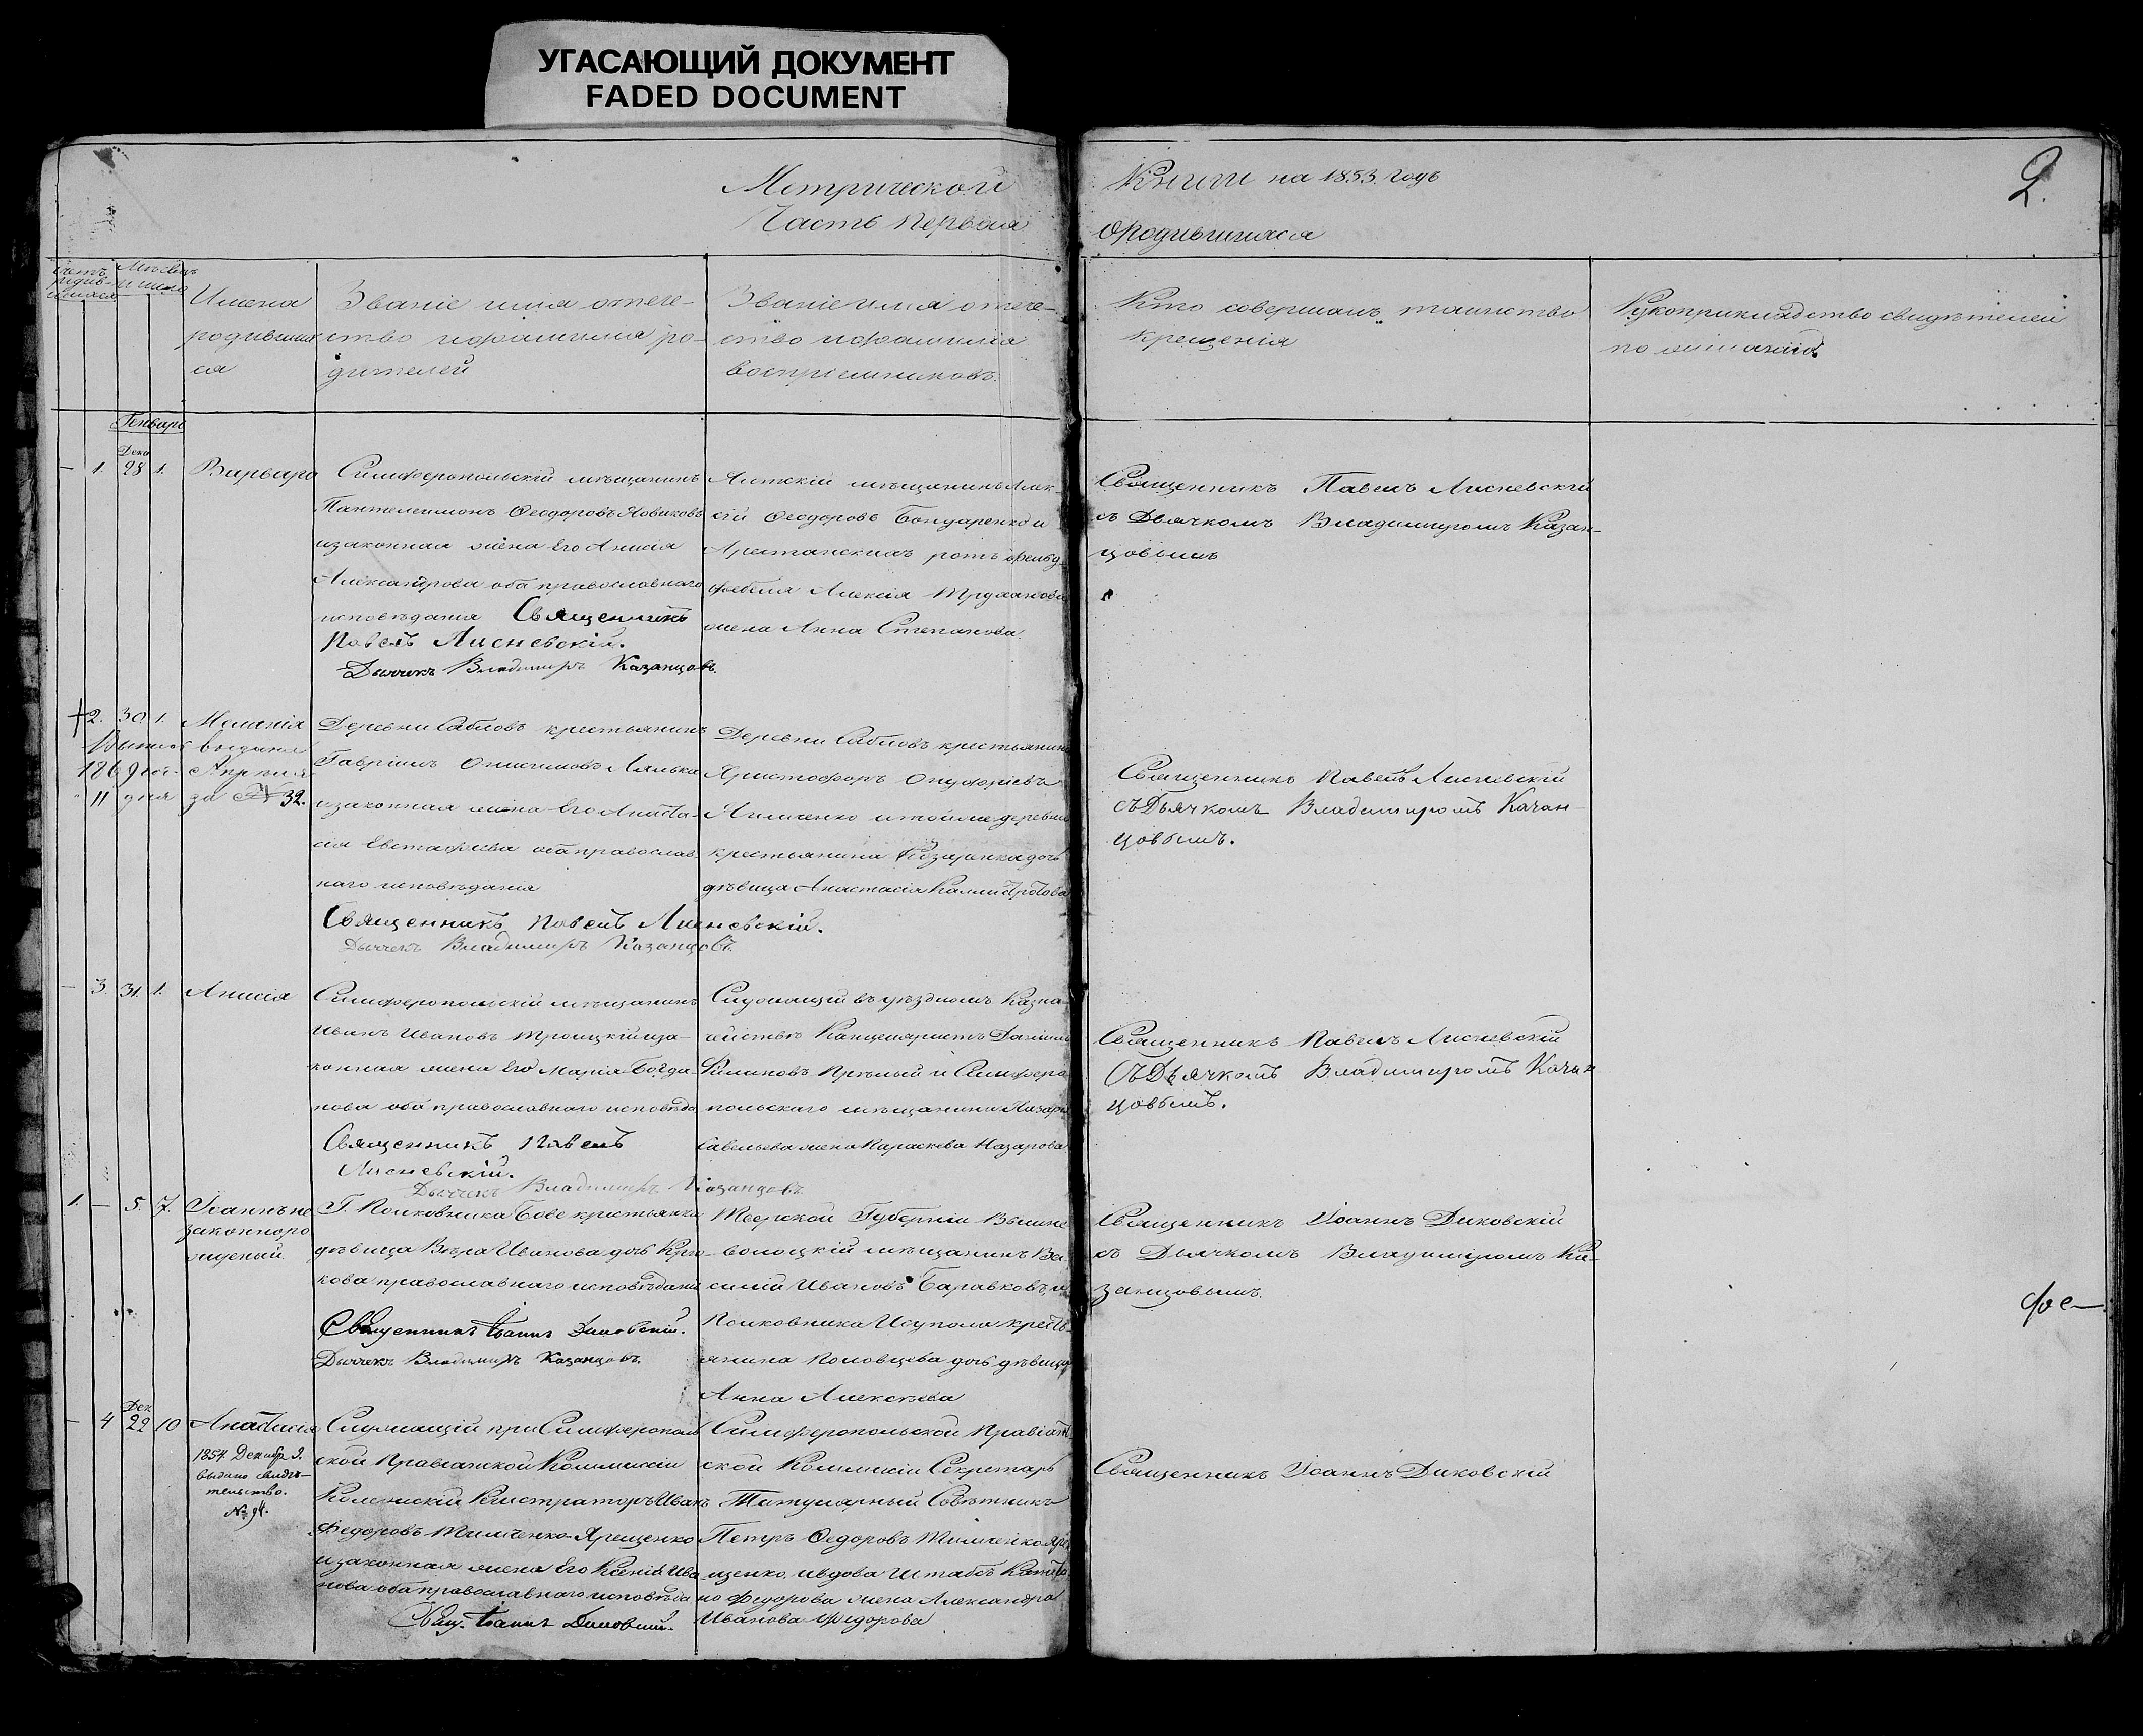 УГАСАЮЩИЙ ДОКУМЕНТ
FADED DOCUMENT
Метрической Книги на 1853. годъ
2.
Часть Первая О Родившихся
Имена
родивших
ся
Званіе имя отече-
ство и фамилия ро-
дителей
Званіе имя отече-
ство и фамилія
воспріемниковъ.
Кто совершалъ таинство
крещенія
Рукоприкладство свидѣтелей
по желанію
Генварь
Дека
1. 28 1. Варвара
Симферопольскій мѣщанинъ
Пантелеимонъ Ѳеодоровъ Новиковъ
и законная жена Его Анисія
Александрова оба православнаго
исповѣданія Священникъ
Павелъ Лисневскій.
Дьячекъ Владимиръ Казанцовъ.
мѣщанинъ Алек-
сій Ѳеодоровъ Бондаренко и
Арестанскихъ ротъ фельд-
фебеля Алексія
жена Анна Степанова.
Священникъ Павелъ Лисневскій
съ Дьячкомъ Владимиромъ Казан-
цовымъ
2. 30. 1. Меланія
выдана
1869 Апрѣля
11 дня за № 32.
Деревни Сабловъ крестьянинъ
Гавріилъ Онисимовъ
и законная жена Его Анаста-
сія Евстафіева оба православ
наго исповѣданія
Священникъ Павелъ Лисневскій.
Дьячекъ Владимиръ Казанцовъ.
Деревни Сабловъ крестьянинъ
Христофоръ Онуфріевъ
и тойже деревни
крестьянина дочь
дѣвица Анастасія Каллистратова
Священникъ Павелъ Лисневскій
съ Дьячкомъ Владимиромъ Казан-
цовымъ.
3. 31. 1. Анисія
Симферопольскій мѣщанинъ
Иванъ Ивановъ Троицкій и за-
конная жена Его Марія Богда-
нова оба православнаго исповѣда
Священникъ Павелъ
Лисневскій.
Дьячекъ Владимиръ Казанцовъ.
Служащій въ уѣздномъ Казна-
чействѣ Канцеляристъ Даніилъ
Филиповъ и Симферо-
польскаго мѣщанина Назара
Савельева жена Параскева Назарова
Священникъ Павелъ Лисневскій
съ Дьячкомъ Владимиромъ Казан
цовымъ.
1. 5. 7. Іоаннъ не
законноро
жденый
Г. Полковника Бове крестьянка
дѣвица Вѣра Иванова дочь
кова православнаго исповѣдані
Священникъ Іоаннъ Диковскій.
Дьячекъ Владимиръ Казанцовъ.
Тверской Губерніи Вышне
волоцкій мѣщанинъ Ва-
силій Ивановъ Баравковъ, и
Полковника крестья-
янина Половцева дочь дѣвица
Анна Алексѣева
Священникъ Іоаннъ Диковскій
съ Дьячкомъ Владимиромъ Ка-
занцовымъ.
Дек
4 22 10 Анастасія
1854 Декабр 9.
выдано свидѣ-
тельство.
№ 94.
Служащій при Симферополь
ской Провіанской Коммисіи
Колежскій Регистраторъ Иванъ
Федоровъ Тимченко-Ярещенко
и законная жена Его Ксенія Ива-
нова оба православнаго исповѣда
Свящ. Іоаннъ Диковскій.
Симферопольской Провіант-
ской Коммисіи Секретарь
Титулярный Совѣтникъ
Петръ Ѳедоровъ Тимченко Яре
щенко, и вдова Штабсъ Капита
на Федорова жена Александра
Иванова Федорова
Священникъ Іоаннъ Диковскій